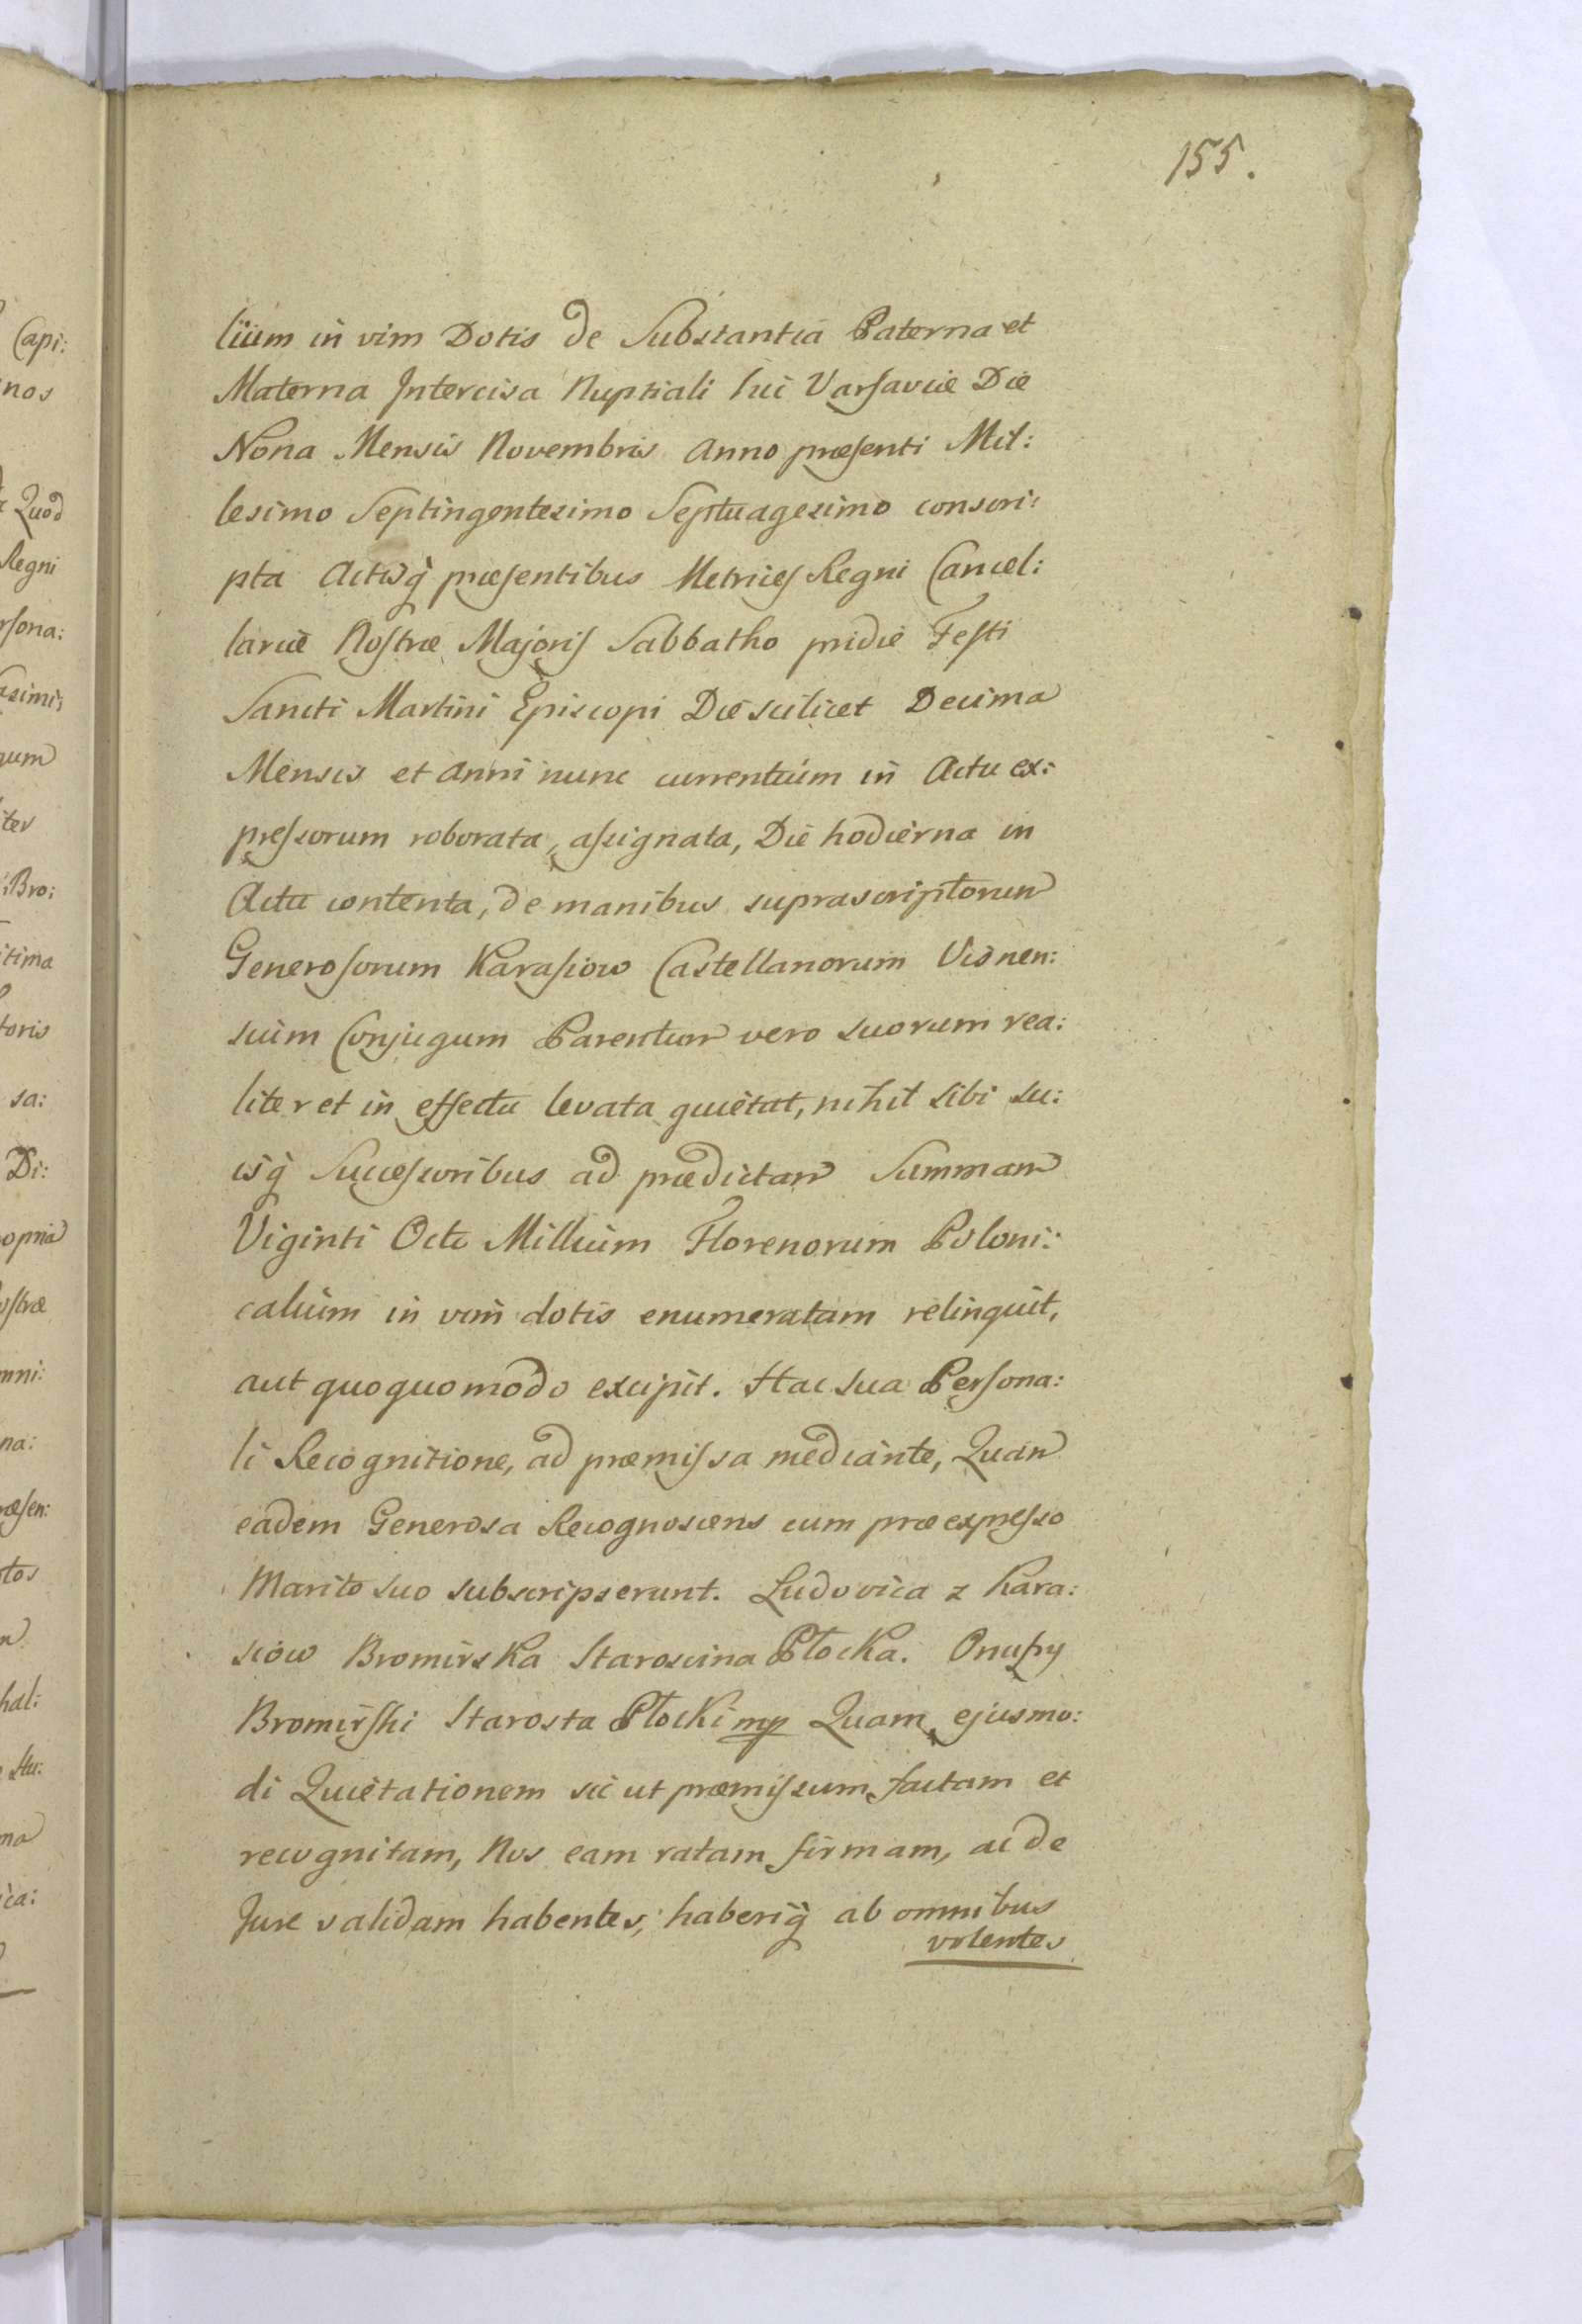 155.
lium in vim Dotis de Substantia Paterna et
Materna Intercisa Nuptiali hic Varsaviæ Die
Nona Mensis Novembris Anno præsenti Mil:
lesimo Septingentesimo Septuagesimo conscri:
pta Actisq̀ præsentibus Metrices Regni Cancel:
lariæ Nostræ Majoris Sabbatho pridie Festi
Sancti Martini Episcopi Die scilicet Decima
Mensis et Anni nunc currentium in Actu ex:
pressorum roborata, assignata, Die hodierna in
Actu contenta, de manibus suprascriptorum
Generosorum Karasiow Castellanorum Visnen:
sium Conjugum Parentum vero suorum rea:
liter et in effectu levata quietat, nihil sibi su:
isq̀ Successoribus ad prædictam Summam
Viginti Octo Millium Florenorum Poloni:
calium in vim dotis enumeratam relinquit,
aut quoquomodo excipit. Hac sua Persona:
li Recognitione, ad præmissa mediante, Quam
eadem Generosa Recognoscens cum præexpresso
Marito suo subscripserunt. Ludovica z Kara:
siow Bromirska Staroscina Płocka. Onufry
Bromirski Starosta Płocki mp Quam ejusmo:
di Quietationem sic ut præmissum factam et
recognitam, Nos eam ratam firmam, ac de
Jure validam habentes, haberiq̀ ab omnibus
volentes
Capi:
nos
Quod
Regni
rsona:
gum
iter
Bro:
itima
toris
sa:
Di:
opria
ostræ
mni:
na:
ræsen:
tos
hal:
ma
ica: